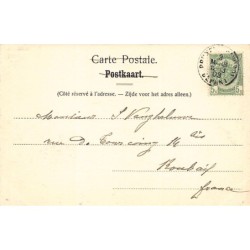 Carte Postale.
Postkaart.
(Côté réservé à l'adresse. — Zijde voor het adres alleen.)
Monsieur J Vangheluwe
rue de Tourcoing
Roubaix
france